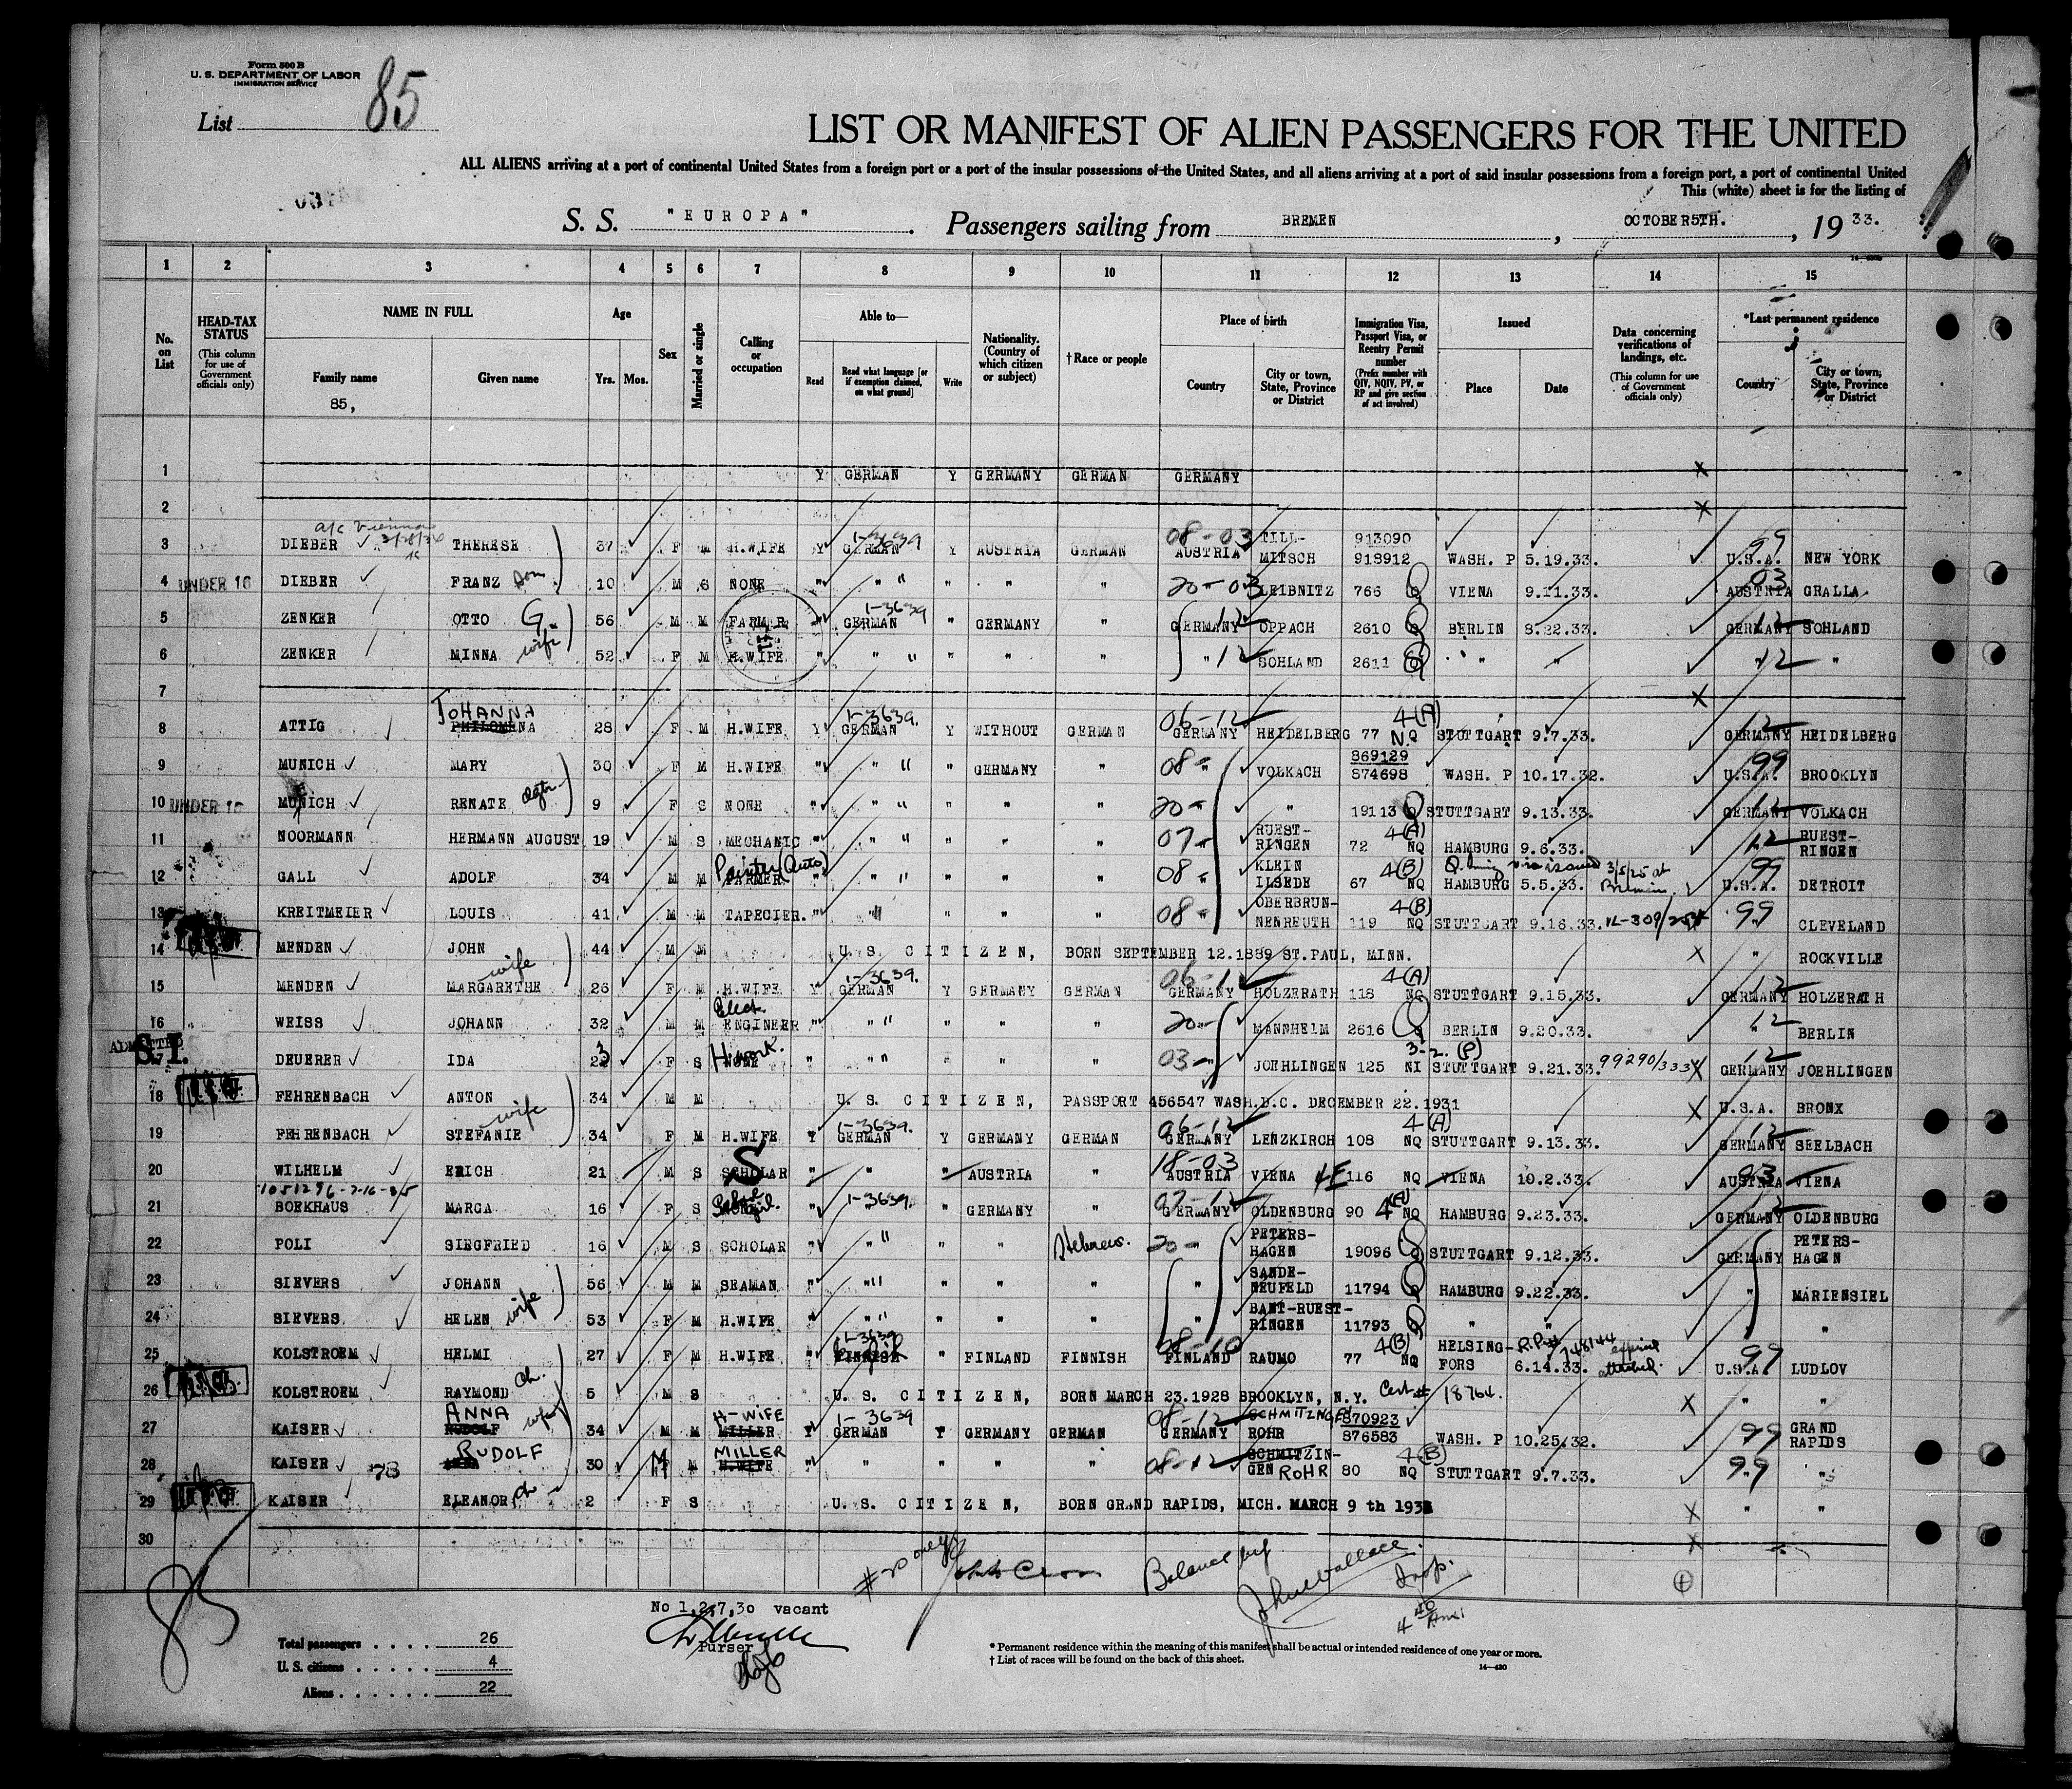 Form 500 B
U. S. DEPARTMENT OF LABOR
IMMIGRATION SERVICE
List 85
LIST OR MANIFEST OF ALIEN PASSENGERS FOR THE UNITED
ALL ALIENS arriving at a port of continental United States from a foreign port or a port of the insular possessions of the United States, and all aliens arriving at a port of said insular possessions from a foreign port, a port of continental United
This (white) sheet is for the listing of
S. S. "EUROPA". Passengers sailing from BREMEN, OCTOBER5TH., 1933.
1 2 3 4 5 6 7 8 9 10 11 12 13 14 15
No. on List
HEAD-TAX STATUS (This column for use of Government officials only)
NAME IN FULL
Family name
85,
Given name
Age
Yrs. Mos.
Sex
Married or single
Calling or occupation
Able to—
Read
Read what language [or if exemption claimed, on what ground]
Write
Nationality. (Country of which citizen or subject)
†Race or people
Place of birth
Country
City or town, State, Province or District
Immigration Visa, Passport Visa, or Reentry Permit number (Prefix number with QIV, NQIV, PV, or RP and give section of act involved)
Issued
Place Date
Data concerning verifications of landings, etc. (This column for use of Government officials only)
*Last permanent residence
Country
City or town, State, Province or District
1 Y GERMAN Y GERMANY GERMAN GERMANY x
2 x
3 DIEBER THERESE 37 F M H.WIFE Y GERMAN 1-3639 Y AUSTRIA GERMAN 08-03 AUSTRIA TILL-MITSCH 913090 918912 WASH. P 5.19.33. 99 U.S.A. NEW YORK
4 UNDER 16 DIEBER FRANZ Son 10 M S NONE " " " " " " 20-03 LEIBNITZ 766 Q VIENA 9.11.33. 03 AUSTRIA GRALLA
5 ZENKER OTTO G. 56 M M FARMER " GERMAN 1-3639 " GERMANY " GERMANY 12 OPPACH 2610 Q BERLIN 8.22.33. GERMANY 12 SOHLAND
6 ZENKER MINNA wife 52 F M H.WIFE " " " " " " " 12 SOHLAND 2611 Q " " " 12 "
7 x
8 ATTIG JOHANNA PHILOMENA 28 F M H.WIFE Y GERMAN 1-3639. Y WITHOUT GERMAN 06-12 GERMANY HEIDELBERG 77 4(A) N.Q STUTTGART 9.7.33. 12 GERMANY HEIDELBERG
9 MUNICH MARY 30 F M H.WIFE " " " " GERMANY " 08- " VOLKACH 869129 874698 WASH. P 10.17.32. 99 U.S.A. BROOKLYN
10 UNDER 16 MUNICH RENATE dgtr. 9 F S NONE " " " " " " 20- " " 19113 Q STUTTGART 9.13.33. 12 GERMANY VOLKACH
11 NOORMANN HERMANN AUGUST 19 M S MECHANIC " " " " " " 07- " RUEST-RINGEN 72 4(A) NQ HAMBURG 9.6.33. 12 RUEST-RINGEN
12 GALL ADOLF 34 M M Painter (Auto) FARMER " " " " " " 08- " KLEIN ILSEDE 67 4(B) NQ HAMBURG 5.5.33. 3/5/25 at Bremen 99 U.S.A. DETROIT
13 KREITMEIER LOUIS 41 M M TAPECIER. " " " " " " 08- " OBERBRUN-NENREUTH 119 4(B) NQ STUTTGART 9.16.33. 99 " CLEVELAND
14 MENDEN JOHN 44 M M U. S. CITIZEN, BORN SEPTEMBER 12.1889 ST.PAUL, MINN. x " ROCKVILLE
15 MENDEN wife MARGARETHE 26 F M H.WIFE Y GERMAN 1-3639. Y GERMANY GERMAN 06-12 GERMANY HOLZERATH 118 4(A) NQ STUTTGART 9.15.33. 12 GERMANY HOLZERATH
16 WEISS JOHANN 32 M M Elect. ENGINEER " " " " " " 20- " MANNHEIM 2616 Q BERLIN 9.20.33. " 12 BERLIN
17 ADMITTED S.I. DEUERER IDA 23 F S H.work. NONE " " " " " " 03- " JOEHLINGEN 125 3-2. (P) NI STUTTGART 9.21.33. 99290/333 x 12 GERMANY JOEHLINGEN
18 FEHRENBACH ANTON 34 M M U. S. CITIZEN, PASSPORT 456547 WASH.D.C. DECEMBER 22.1931 x U.S.A. BRONX
19 FEHRENBACH wife STEFANIE 34 F M H.WIFE Y GERMAN 1-3639. Y GERMANY GERMAN 06-12 GERMANY LENZKIRCH 108 4(A) NQ STUTTGART 9.13.33. 12 GERMANY SEELBACH
20 WILHELM ERICH 21 M S SCHOLAR S " " " AUSTRIA " 18-03 AUSTRIA VIENA 4E 116 NQ VIENA 10.2.33. 03 AUSTRIA VIENA
21 BOEKHAUS MARGA 16 F S " 1-3639. " GERMANY " 07-12 GERMANY OLDENBURG 90 4(A) NQ HAMBURG 9.23.33. 12 GERMANY OLDENBURG
22 POLI SIEGFRIED 16 M S SCHOLAR " " " " " Hebrew. 20- " PETERS-HAGEN 19096 Q STUTTGART 9.12.33. GERMANY PETERS-HAGEN
23 SIEVERS JOHANN 56 M M SEAMAN " " " " " " " SANDE-NEUFELD 11794 Q HAMBURG 9.22.33. " MARIENSIEL
24 SIEVERS HELEN wife 53 F M H.WIFE " " " " " " " BANT-RUEST-RINGEN 11793 Q " " " "
25 KOLSTROEM HELMI 27 F M H.WIFE " 1-3639 English FINNISH " FINLAND FINNISH 08-10 FINLAND RAUMO 77 4(B) NQ HELSING-FORS 6.14.33. 99 U.S.A. LUDLOV
26 KOLSTROEM RAYMOND ch. 5 M S U. S. CITIZEN, BORN MARCH 23.1928 BROOKLYN, N.Y. Cert # 18764. x " "
27 KAISER ANNA RUDOLF wife 34 M M H-WIFE MILLER Y 1-3639 GERMAN Y GERMANY GERMAN 08-12 GERMANY SCHMITZINGEN ROHR 870923 876583 WASH. P 10.25.32. 99 GRAND RAPIDS
28 KAISER RUDOLF 30 M M MILLER H.WIFE " " " " " 08-12 SCHMITZIN-GEN ROHR 80 4(B) NQ STUTTGART 9.7.33. 99 " "
29 KAISER ELEANOR ch 2 F S U. S. CITIZEN, BORN GRAND RAPIDS, MICH. MARCH 9 th 193 x " "
30 x
#20 only Balance by John Wallace. Insp.
85
No 1,2,7,30 vacant
Purser
Total passengers . . . . 26
U. S. citizens . . . . . 4
Aliens . . . . . . 22
* Permanent residence within the meaning of this manifest shall be actual or intended residence of one year or more.
† List of races will be found on the back of this sheet.
14—430